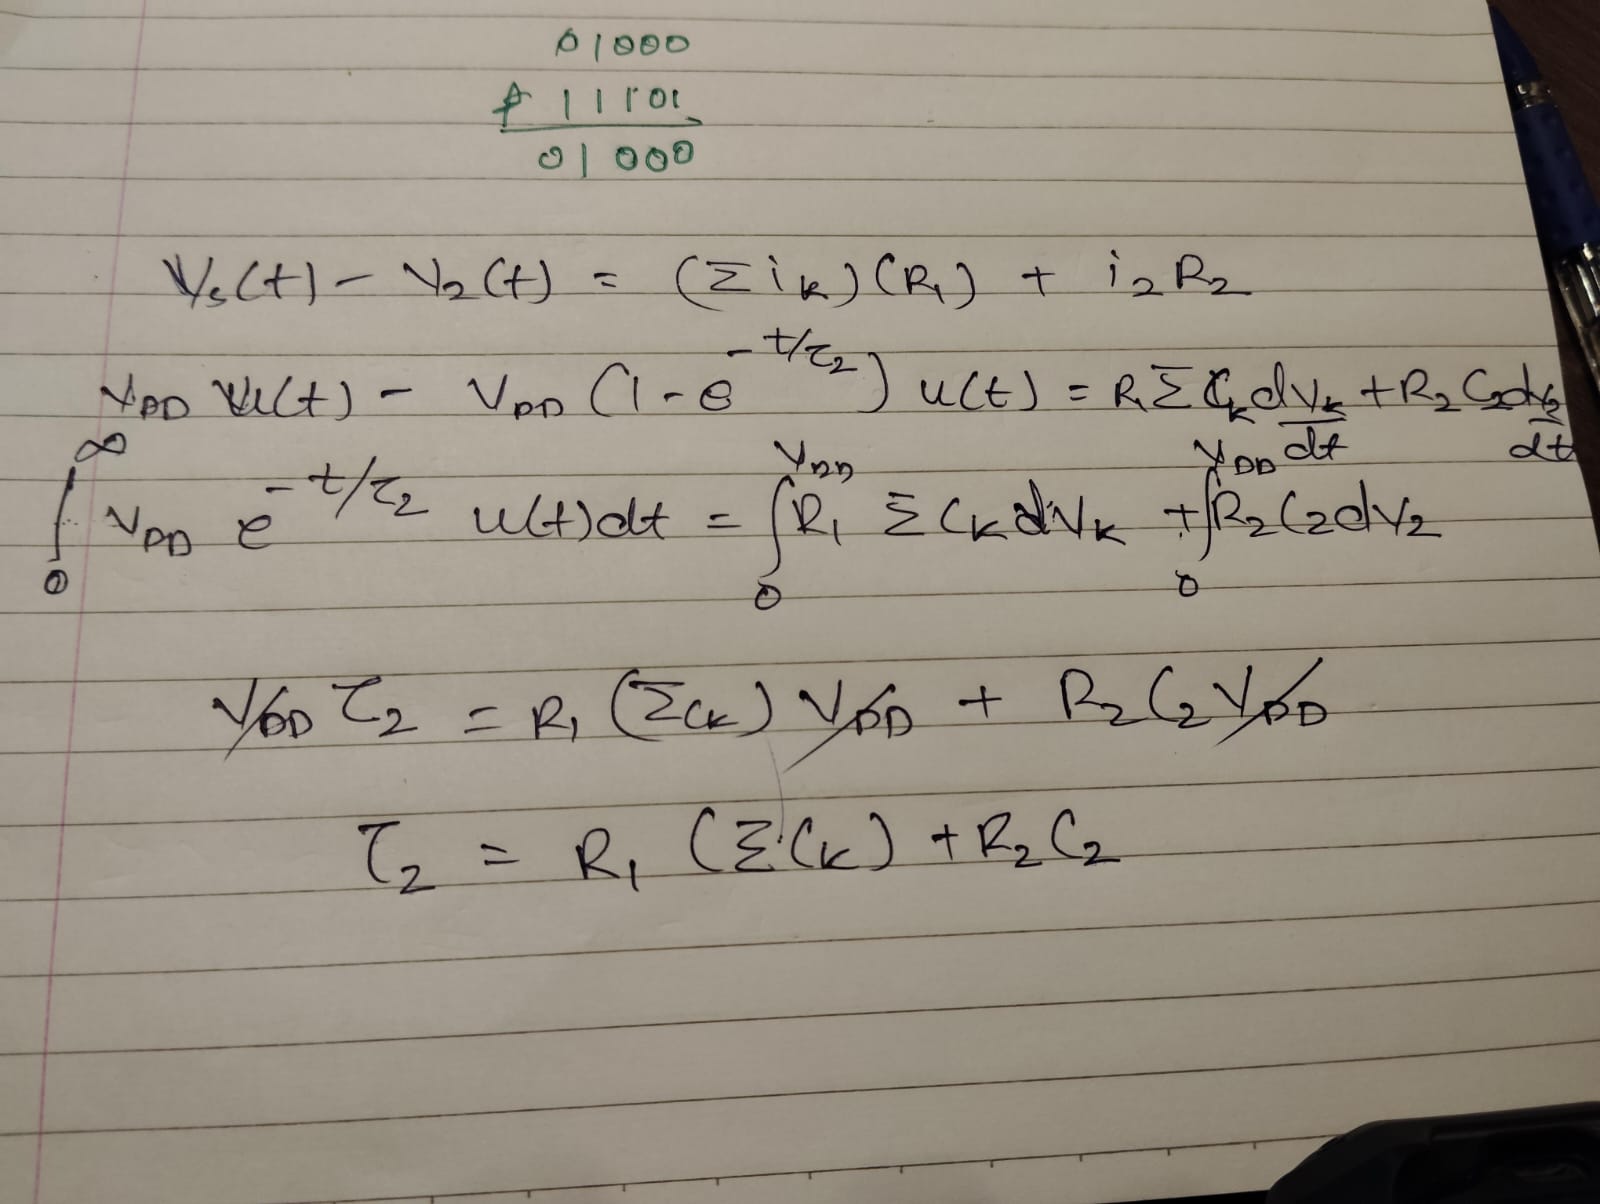 01000
+ 11101
01000
Vs(t) - V2(t) = (Σik)(R1) + i2R2
VDD u(t) - VDD (1-e^-t/τ2) u(t) = R1 Σ Ck dVk/dt + R2 C2 dV2/dt
∫0^∞ VDD e^-t/τ2 u(t)dt = ∫0^VDD R1 Σ Ck dVk + ∫0^VDD R2C2dV2
VDD τ2 = R1 (ΣCk) VDD + R2 C2 VDD
τ2 = R1 (ΣCk) + R2 C2